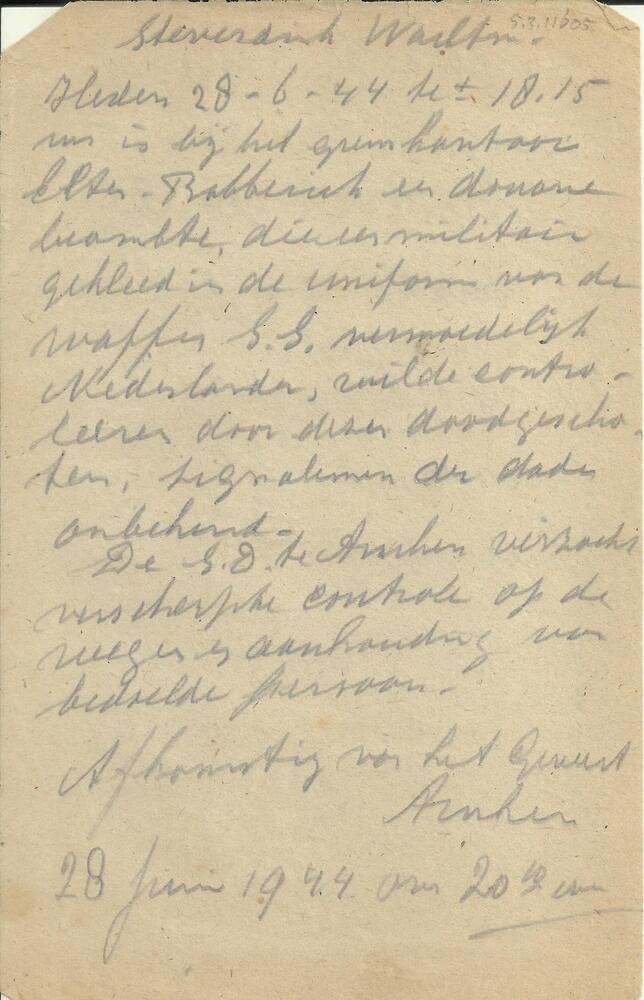 5.3.11605
Steverdink Wachtm.
Heden 28-6-44 te ± 18.15
uur is bij het grenskantoor
Elten-Babberich een douane
beambte, die een militair
gekleed in de uniform van de
waffen S.S. vermoedelijk
Nederlander, wilde contro-
leeren door dezen doodgescho-
ten, signalemen der dader
onbekend.
De S.D. te Arnhem verzocht
verscherpte controle op de
wegen en aanhouding van
bedoelde persoon.
Afkomstig van het Gewest
Arnhem
28 Juni 1944 om 20 40 uur